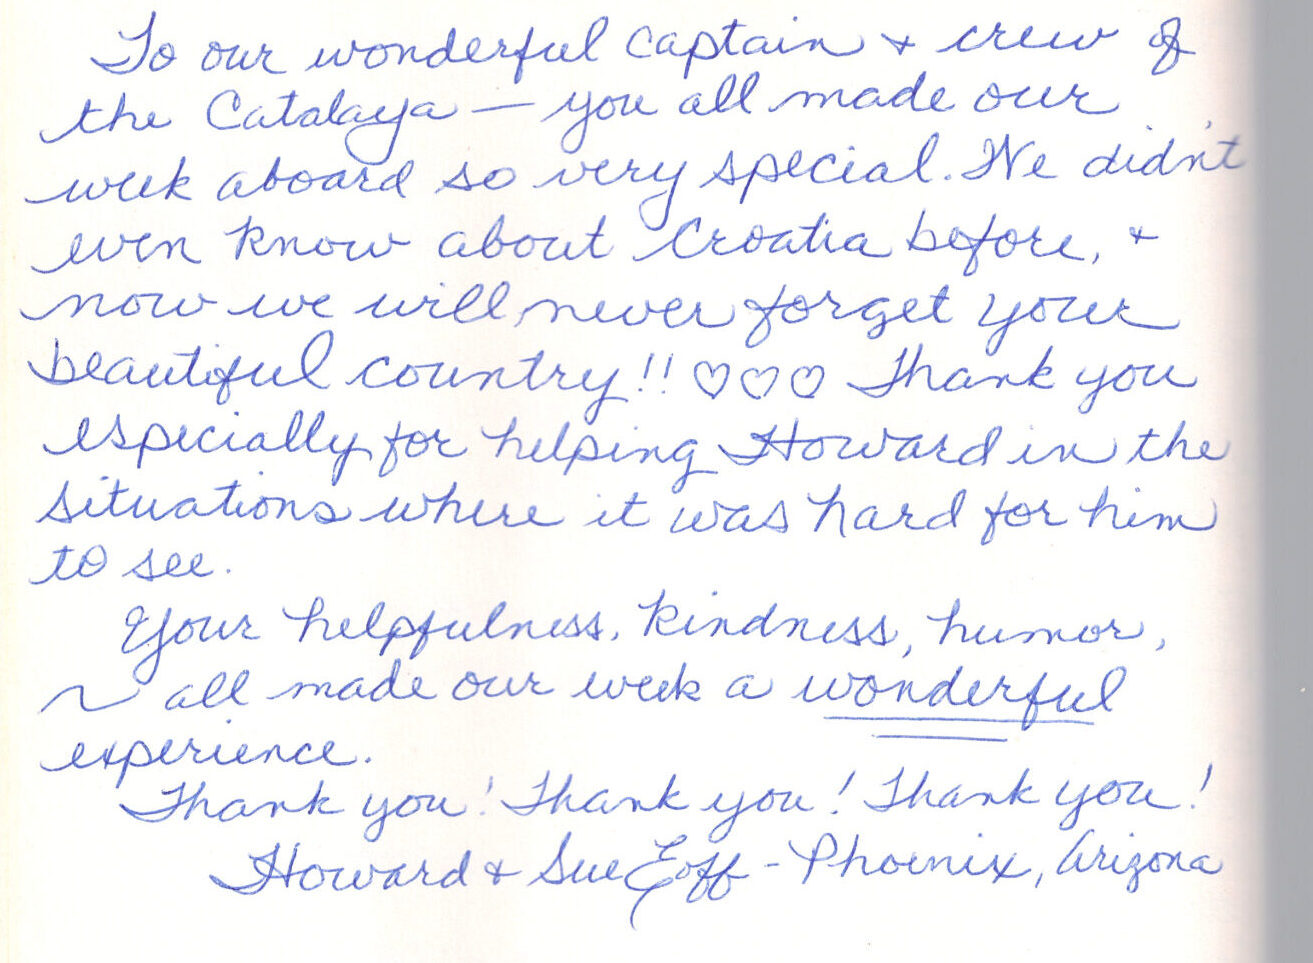 To our wonderful captain + crew of
the Catalaya — you all made our
week aboard so very special. We didn't
even know about Croatia before, +
now we will never forget your
beautiful country!! ♡♡♡ Thank you
especially for helping Howard in the
situations where it was hard for him
to see.
Your helpfulness, kindness, humor,
~ all made our week a wonderful
experience.
Thank you! Thank you! Thank you!
Howard + Sue Eoff - Phoenix, Arizona